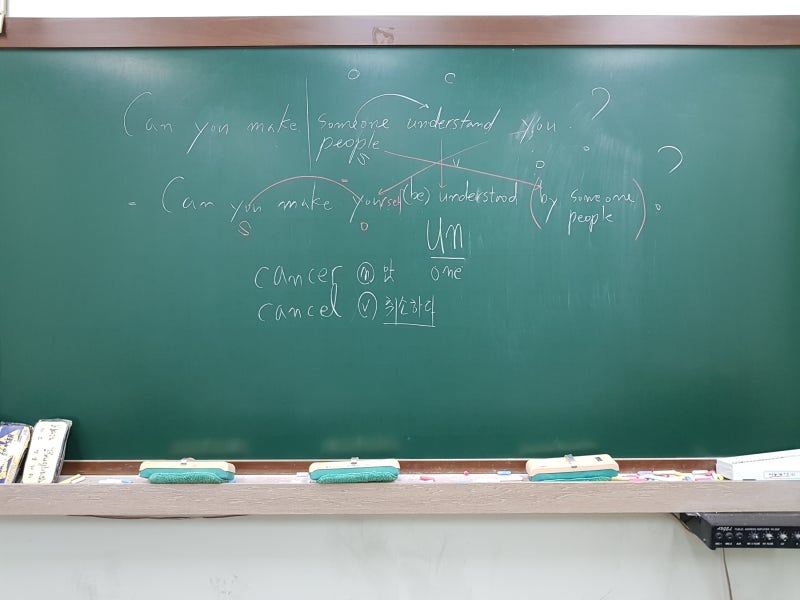 O C
Can you make someone understand you.?
people
S V O
= Can you make yourself (be) understood (by someone
people).?
S O
un
cancer ⓝ 암 one
cancel ⓥ 취소하다